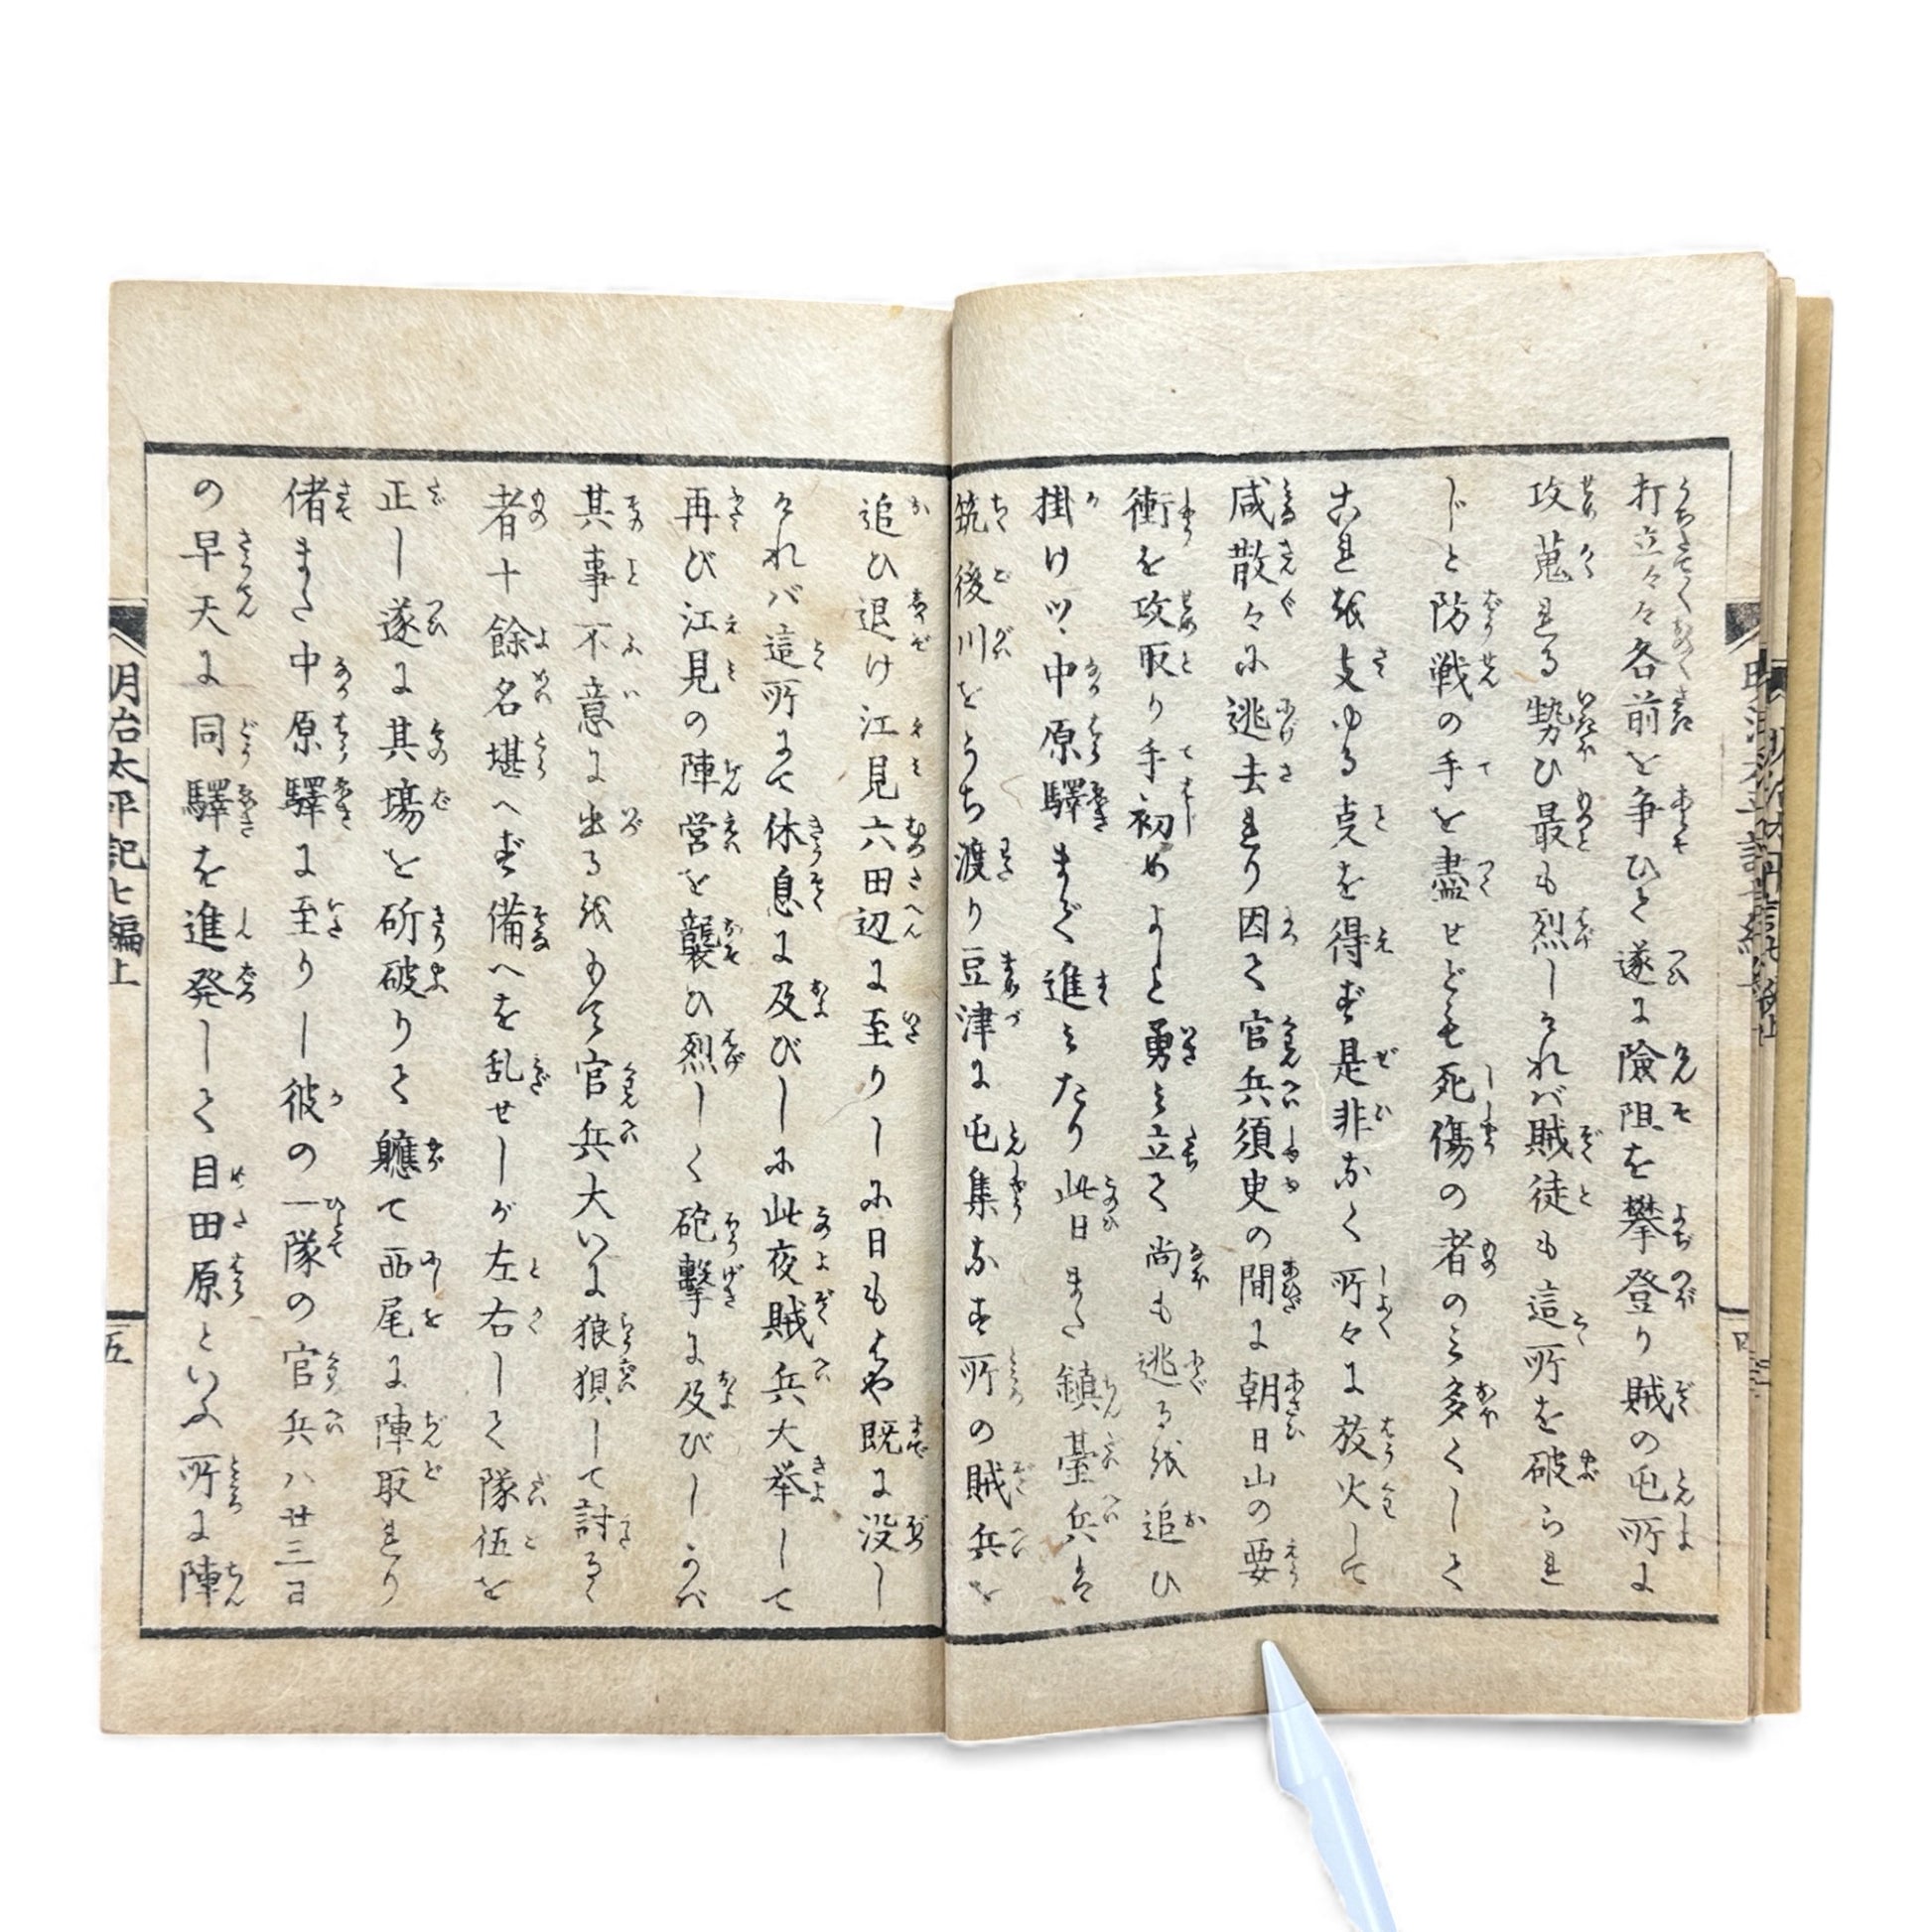 打立々々各前を争ひて遂に險阻を攀登り賊の屯所に
攻蒐れる勢ひ最も烈しければ賊徒も這所を破られ
じと防戦の手を盡せども死傷の者のミ多くして
これを支ゆる克を得ず是非なく所々に放火して
咸散々に逃去れり因て官兵須史の間に朝日山の要
衝を攻取り手初めよしと勇ミ立て尚も逃る を追ひ
掛けツヽ中原驛まで進ミたり此日また鎮臺兵は
筑後川をうち渡り豆津に屯集なす所の賊兵を
追ひ退け江見六田辺に至りしに日もはや既に没し
ければ這所にて休息に及びしに此夜賊兵大挙して
再び江見の陣営を襲ひ烈しく砲撃に及びしうへ
其事不意に出るをもて官兵大いに狼狽して討るゝ
者十餘名堪へず備へを乱せしが左右して隊伍を
正し遂に其塲を斫破りて軈て西尾に陣取れり
偖また中原驛に至りし彼の一隊の官兵ハ廿三日
の早天に同驛を進発して目田原といふ所に陣
明治太平記七編上
五
四